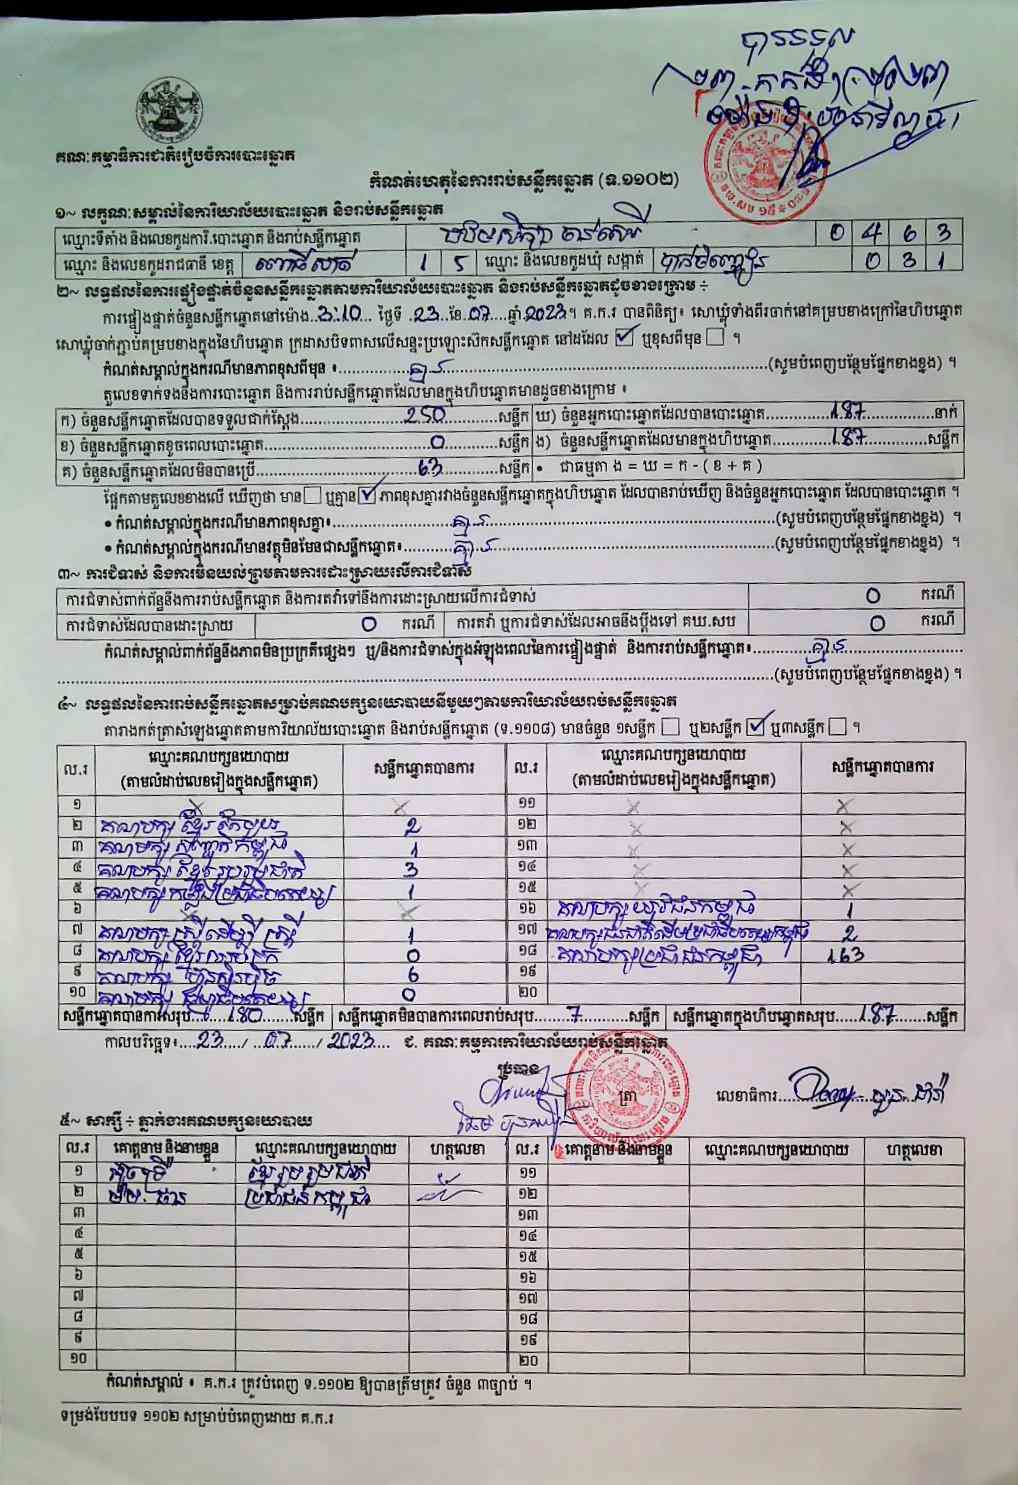 បានទទួល
គណៈកម្មាធិការជាតិរៀបចំការបោះឆ្នោត
កំណត់ហេតុនៃការរាប់សន្លឹកឆ្នោត (ទ.១១០២)
១~ លក្ខណៈសម្គាល់នៃការិយាល័យបោះឆ្នោត និងរាប់សន្លឹកឆ្នោត
ឈ្មោះទីតាំង និងលេខកូដការិ.បោះឆ្នោត និងរាប់សន្លឹកឆ្នោត 0 4 6 3
ឈ្មោះ និងលេខកូដរាជធានី ខេត្ត ពោធិ៍សាត់ 1 5 ឈ្មោះ និងលេខកូដឃុំ សង្កាត់ បាក់ចិញ្ចៀន 0 3 1
២~ លទ្ធផលនៃការផ្ទៀងផ្ទាត់ចំនួនសន្លឹកឆ្នោតតាមការិយាល័យបោះឆ្នោត និងរាប់សន្លឹកឆ្នោតដូចខាងក្រោម ÷
ការផ្ទៀងផ្ទាត់ចំនួនសន្លឹកឆ្នោតនៅម៉ោង..3:10... ថ្ងៃទី .23..ខែ.07...ឆ្នាំ.2023។ គ.ក.រ បានពិនិត្យ៖ សោឃ្លុំទាំងពីរចាក់នៅគម្របខាងក្រៅនៃហិបឆ្នោត
សោឃ្លុំចាក់ភ្ជាប់គម្របខាងក្នុងនៃហិបឆ្នោត ក្រដាសបិទពាសលើសន្ទះប្រឡោះស៊កសន្លឹកឆ្នោត នៅដដែល ☑ ឬខុសពីមុន ☐ ។
កំណត់សម្គាល់ក្នុងករណីមានភាពខុសពីមុន ៖......គ្មាន......(សូមបំពេញបន្ថែមផ្នែកខាងខ្នង) ។
តួលេខទាក់ទងនឹងការបោះឆ្នោត និងការរាប់សន្លឹកឆ្នោតដែលមានក្នុងហិបឆ្នោតមានដូចខាងក្រោម ៖
ក) ចំនួនសន្លឹកឆ្នោតដែលបានទទួលជាក់ស្តែង......250......សន្លឹក ឃ) ចំនួនអ្នកបោះឆ្នោតដែលបានបោះឆ្នោត......187......នាក់
ខ) ចំនួនសន្លឹកឆ្នោតខូចពេលបោះឆ្នោត......0......សន្លឹក ង) ចំនួនសន្លឹកឆ្នោតដែលមានក្នុងហិបឆ្នោត......187......សន្លឹក
គ) ចំនួនសន្លឹកឆ្នោតដែលមិនបានប្រើ......63......សន្លឹក • ជាធម្មតា ង = ឃ = ក - ( ខ + គ )
ផ្អែកតាមតួលេខខាងលើ ឃើញថា មាន ☐ ឬគ្មាន ☑ ភាពខុសគ្នារវាងចំនួនសន្លឹកឆ្នោតក្នុងហិបឆ្នោត ដែលបានរាប់ឃើញ និងចំនួនអ្នកបោះឆ្នោត ដែលបានបោះឆ្នោត ។
• កំណត់សម្គាល់ក្នុងករណីមានភាពខុសគ្នា៖......គ្មាន......(សូមបំពេញបន្ថែមផ្នែកខាងខ្នង) ។
• កំណត់សម្គាល់ក្នុងករណីមានវត្ថុមិនមែនជាសន្លឹកឆ្នោត៖......គ្មាន......(សូមបំពេញបន្ថែមផ្នែកខាងខ្នង) ។
៣~ ការជំទាស់ និងការមិនយល់ព្រមតាមការដោះស្រាយលើការជំទាស់
ការជំទាស់ពាក់ព័ន្ធនឹងការរាប់សន្លឹកឆ្នោត និងការតវ៉ាទៅនឹងការដោះស្រាយលើការជំទាស់ 0 ករណី
ការជំទាស់ដែលបានដោះស្រាយ 0 ករណី ការតវ៉ា ឬការជំទាស់ដែលអាចនឹងប្តឹងទៅ គឃ.សប 0 ករណី
កំណត់សម្គាល់ពាក់ព័ន្ធនឹងភាពមិនប្រក្រតីផ្សេងៗ ឬ/និងការជំទាស់ក្នុងអំឡុងពេលនៃការផ្ទៀងផ្ទាត់ និងការរាប់សន្លឹកឆ្នោត៖......គ្មាន......
......(សូមបំពេញបន្ថែមផ្នែកខាងខ្នង) ។
៤~ លទ្ធផលនៃការរាប់សន្លឹកឆ្នោតសម្រាប់គណបក្សនយោបាយនីមួយៗតាមការិយាល័យរាប់សន្លឹកឆ្នោត
តារាងកត់ត្រាសំឡេងឆ្នោតតាមការិយាល័យបោះឆ្នោត និងរាប់សន្លឹកឆ្នោត (ទ.១១០៨) មានចំនួន ១សន្លឹក ☐ ឬ២សន្លឹក ☑ ឬ៣សន្លឹក ☐ ។
ល.រ ឈ្មោះគណបក្សនយោបាយ (តាមលំដាប់លេខរៀងក្នុងសន្លឹកឆ្នោត) សន្លឹកឆ្នោតបានការ ល.រ ឈ្មោះគណបក្សនយោបាយ (តាមលំដាប់លេខរៀងក្នុងសន្លឹកឆ្នោត) សន្លឹកឆ្នោតបានការ
១ × × ១១ × ×
២ គណបក្ស ខ្មែរ 2 ១២ × ×
៣ គណបក្ស កម្ពុជា 1 ១៣ × ×
៤ គណបក្ស ខ្មែររួបរួមជាតិ 3 ១៤ × ×
៥ គណបក្ស កម្លាំងប្រជាធិបតេយ្យ 1 ១៥ × ×
៦ × × ១៦ គណបក្ស យុវជនកម្ពុជា 1
៧ គណបក្ស ស្ត្រីដើម្បីស្ត្រី 1 ១៧ 2
៨ គណបក្ស ខ្មែរ 0 ១៨ គណបក្សប្រជាជនកម្ពុជា 163
៩ គណបក្ស ហ៊្វុនស៊ិនប៉ិច 6 ១៩
១០ គណបក្ស ប្រជាធិបតេយ្យ 0 ២០
សន្លឹកឆ្នោតបានការសរុប......180......សន្លឹក សន្លឹកឆ្នោតមិនបានការពេលរាប់សរុប......7......សន្លឹក សន្លឹកឆ្នោតក្នុងហិបឆ្នោតសរុប......187......សន្លឹក
កាលបរិច្ឆេទ៖....23..../ ..07..../ 2023.... ជ. គណៈកម្មការការិយាល័យរាប់សន្លឹកឆ្នោត
ប្រធាន
ត្រា
លេខាធិការ......
៥~ សាក្សី ÷ ភ្នាក់ងារគណបក្សនយោបាយ
ល.រ គោត្តនាម និងនាមខ្លួន ឈ្មោះគណបក្សនយោបាយ ហត្ថលេខា ល.រ គោត្តនាម និងនាមខ្លួន ឈ្មោះគណបក្សនយោបាយ ហត្ថលេខា
១ ខ្មែររួបរួមជាតិ ១១
២ ប្រជាជនកម្ពុជា ១២
៣ ១៣
៤ ១៤
៥ ១៥
៦ ១៦
៧ ១៧
៨ ១៨
៩ ១៩
១០ ២០
កំណត់សម្គាល់ ៖ គ.ក.រ ត្រូវបំពេញ ទ.១១០២ ឱ្យបានត្រឹមត្រូវ ចំនួន ៣ច្បាប់ ។
ទម្រង់បែបបទ ១១០២ សម្រាប់បំពេញដោយ គ.ក.រ